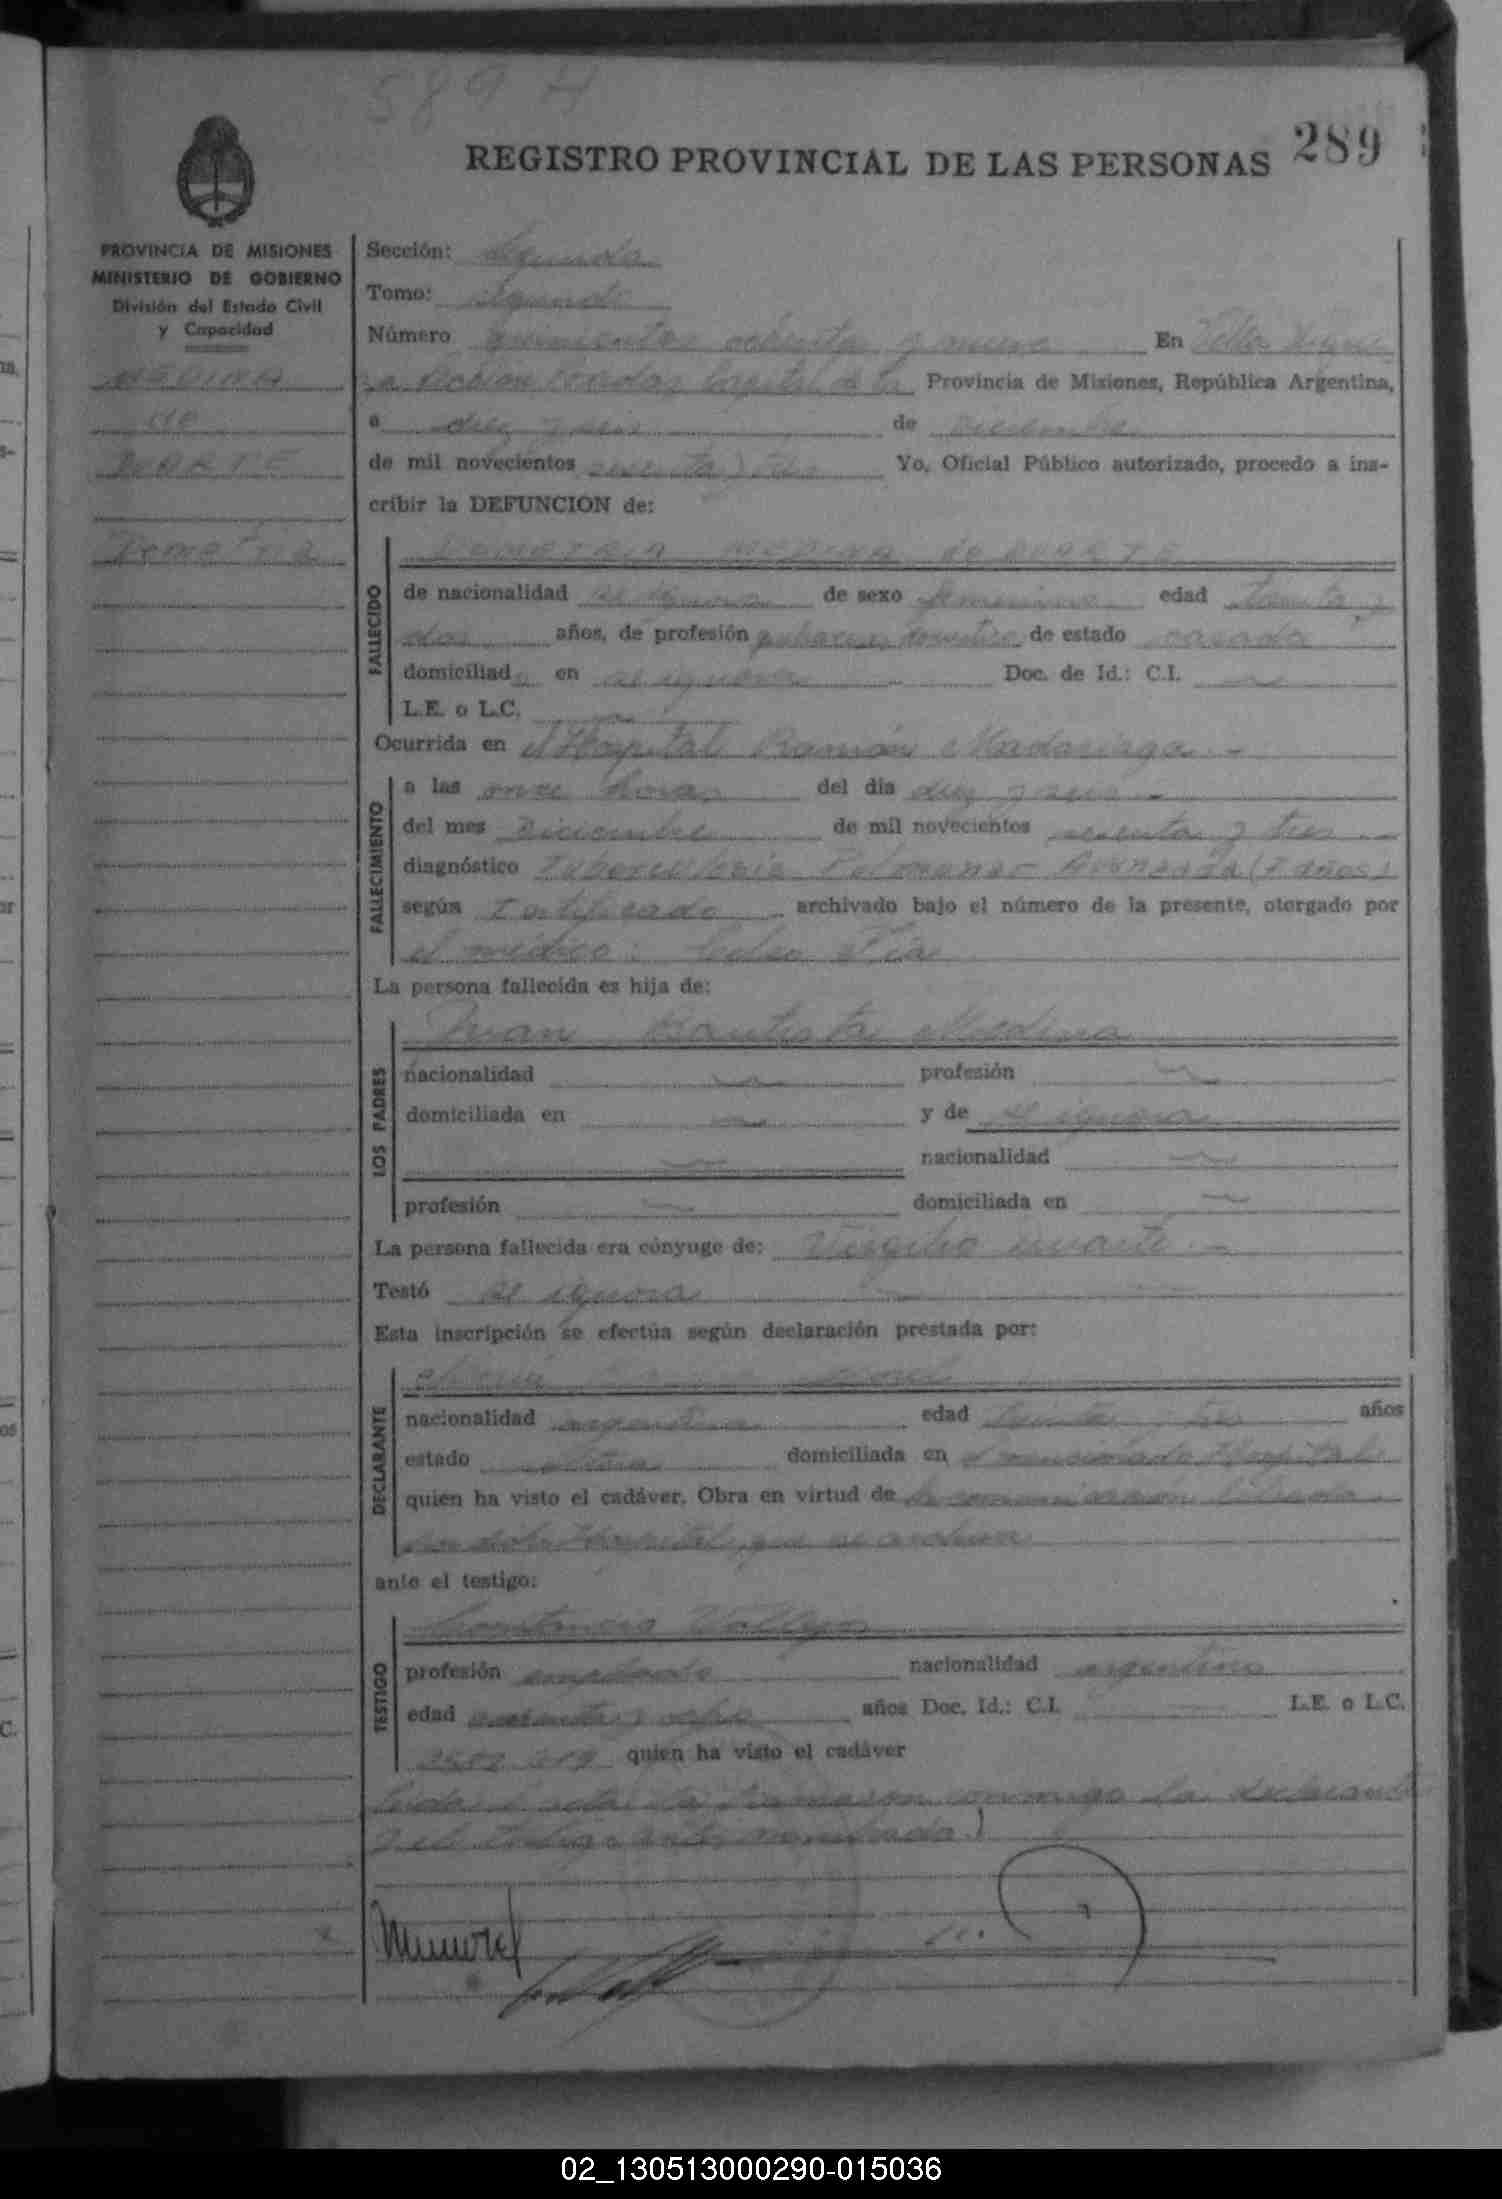 589 H
REGISTRO PROVINCIAL DE LAS PERSONAS 289
PROVINCIA DE MISIONES
MINISTERIO DE GOBIERNO
División del Estado Civil
y Capacidad
MEDINA
de
DUARTE
Demetria
Sección: Segunda
Tomo: Segundo
Número quinientos ochenta y nueve En Villa
Sección Posadas Capital de la Provincia de Misiones, República Argentina,
a diez y seis de Diciembre
de mil novecientos sesenta y tres Yo, Oficial Público autorizado, procedo a ins-
cribir la DEFUNCION de:
FALLECIDO
DEMETRIA MEDINA de DUARTE
de nacionalidad se ignora de sexo femenino edad treinta y
dos años, de profesión quehaceres domésticos de estado casada
domiciliada en se ignora Doc. de Id.: C.I.
L.E. o L.C.
Ocurrida en el Hospital Ramón Madariaga
FALLECIMIENTO
a las once horas del día diez y seis
del mes Diciembre de mil novecientos sesenta y tres
diagnóstico Tuberculosis Pulmonar Avanzada
según Certificado archivado bajo el número de la presente, otorgado por
el médico:
La persona fallecida es hija de:
LOS PADRES
Juan Bautista Medina
nacionalidad profesión
domiciliada en y de se ignora
nacionalidad
profesión domiciliada en
La persona fallecida era cónyuge de: Virgilio Duarte
Testó se ignora
Esta inscripción se efectúa según declaración prestada por:
DECLARANTE
María
nacionalidad argentina edad treinta y tres años
estado soltera domiciliada en el mencionado Hospital
quien ha visto el cadáver. Obra en virtud de la comunicación librada
por dicho Hospital que se archiva
ante el testigo:
TESTIGO
Constancio Vallejos
profesión empleado nacionalidad argentino
edad y ocho años Doc. Id.: C.I. L.E. o L.C.
quien ha visto el cadáver
Leida el acta la firmaron conmigo la declarante
y el testigo antes nombrado
02_130513000290-015036